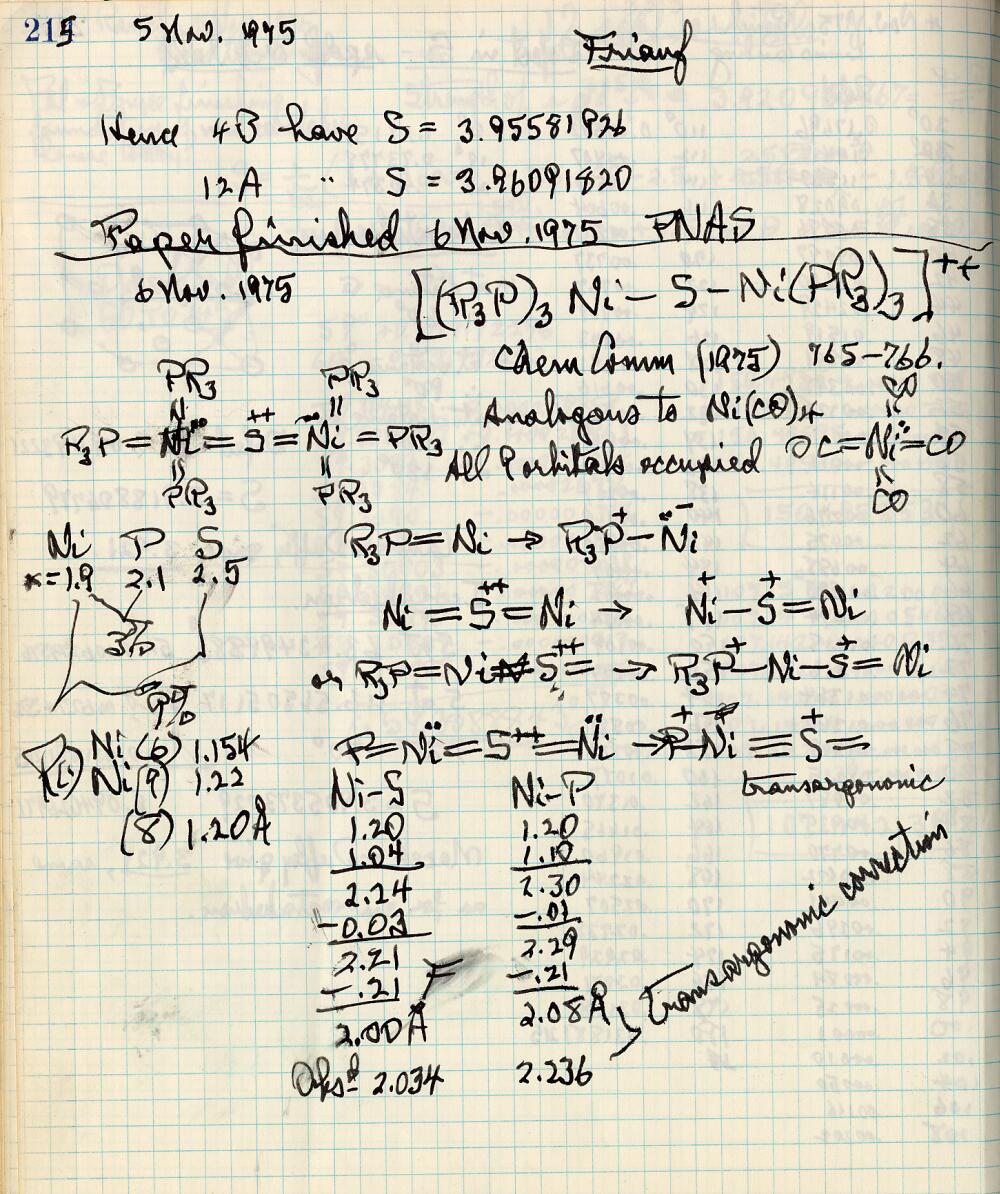 215 5 Nov. 1975
Friauf
Hence 4B have S = 3.95581926
12A " S = 3.96091820
Paper finished 6 Nov. 1975 PNAS
6 Nov. 1975 [(R3P)3 Ni — S — Ni(PR3)3]++
Chem Comm (1975) 765–766.
PR3 PR3
Analogous to Ni(CO)4
R3P=Ni=S++=Ni=PR3
PR3 PR3
All 9 orbitals occupied
CO
OC=Ni=CO
CO
Ni P S
x=1.9 2.1 2.5
3%
9%
R3P=Ni → R3P+–Ni−
Ni=S++=Ni → Ni+–S+=Ni
or R3P=Ni S++= → R3P+–Ni–S+=Ni
P=Ni=S++=Ni → P+–Ni≡S+=
transargononic
R(1) Ni(6) 1.154
Ni(9) 1.22
(8) 1.20Å
Ni–S Ni–P
1.20 1.20
1.04 1.10
2.24 2.30
–0.03 –.01
2.21 2.29
–.21 –.21
2.00Å 2.08Å
transargononic correction
Obsd 2.034 2.236